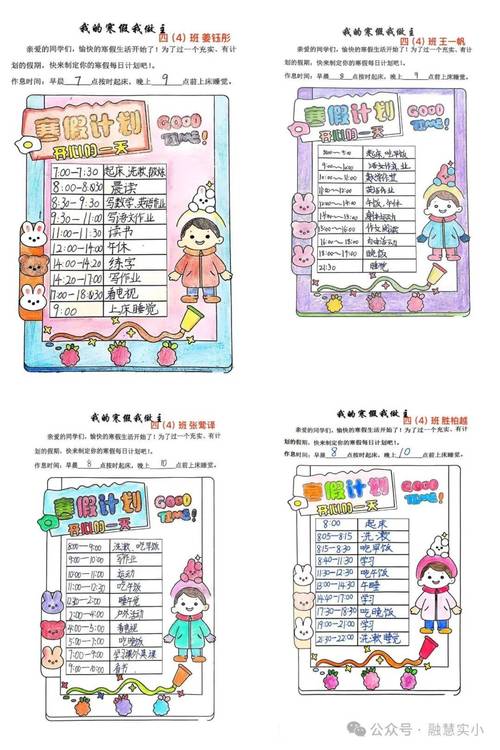 我的寒假我做主
四（4）班 姜钰彤
亲爱的同学们，愉快的寒假生活开始了！为了过一个充实、有计
划的假期，快来制定你的寒假每日计划吧！。
作息时间：早晨 7 点按时起床，晚上 9 点前上床睡觉。
寒假计划
GOOD TIME!
开心的一天
7:00-7:30 起床、洗漱、
8:00- 晨读
8:30-9:30 写数学、英语作业
9:30-11:00 写语文作业
11:00-11:30 读书
12:00-14:00 午休
14:00-14:20 练字
14:20-17:00 写作业
看电视
9:00 上床睡觉
我的寒假我做主
四（4）班 王一帆
亲爱的同学们，愉快的寒假生活开始了！为了过一个充实、有
计划的假期，快来制定你的寒假每日计划吧！。
作息时间：早晨 8 点按时起床，晚上 9 点前上床睡觉。
寒假计划
GOOD TIME!
开心的一天
起床、吃早饭
语文作业
数学作业
英语作业
午饭、午休
晚饭
21:30 睡觉
我的寒假我做主
四（4）班 张莺译
亲爱的同学们，愉快的寒假生活开始了！为了过一个充实、有计
划的假期，快来制定你的寒假每日计划吧！。
作息时间：早晨 8 点按时起床，晚上 10 点前上床睡觉。
寒假计划
GOOD TIME!
开心的一天
8:00-9:00 洗漱、吃早饭
9:00-10:00 写作业
10:00-11:00 运动
11:00-11:30 吃午饭
11:30-2:00 睡午觉
2:00-4:00 户外活动
4:00-5:00 看电视
5:00-7:00 吃晚饭
7:00-9:00 学习课外英语
9:00-10:00 看书
我的寒假我做主
四（4）班 胜柏越
亲爱的同学们，愉快的寒假生活开始了！为了过一个充实、有
计划的假期，快来制定你的寒假每日计划吧！。
作息时间：早晨 8 点按时起床，晚上 10 点前上床睡觉。
寒假计划
GOOD TIME!
开心的一天
8:00 起床
8:05-8:15 洗漱
8:15-8:30 吃早饭
8:40-11:30 学习
11:30-12:30 吃午饭
13:00-14:30 午睡
14:40-17:00 学习
17:30-18:30 吃晚饭
19:00-21:00 学习
21:30-22:00 洗漱睡觉
公众号·融慧实小